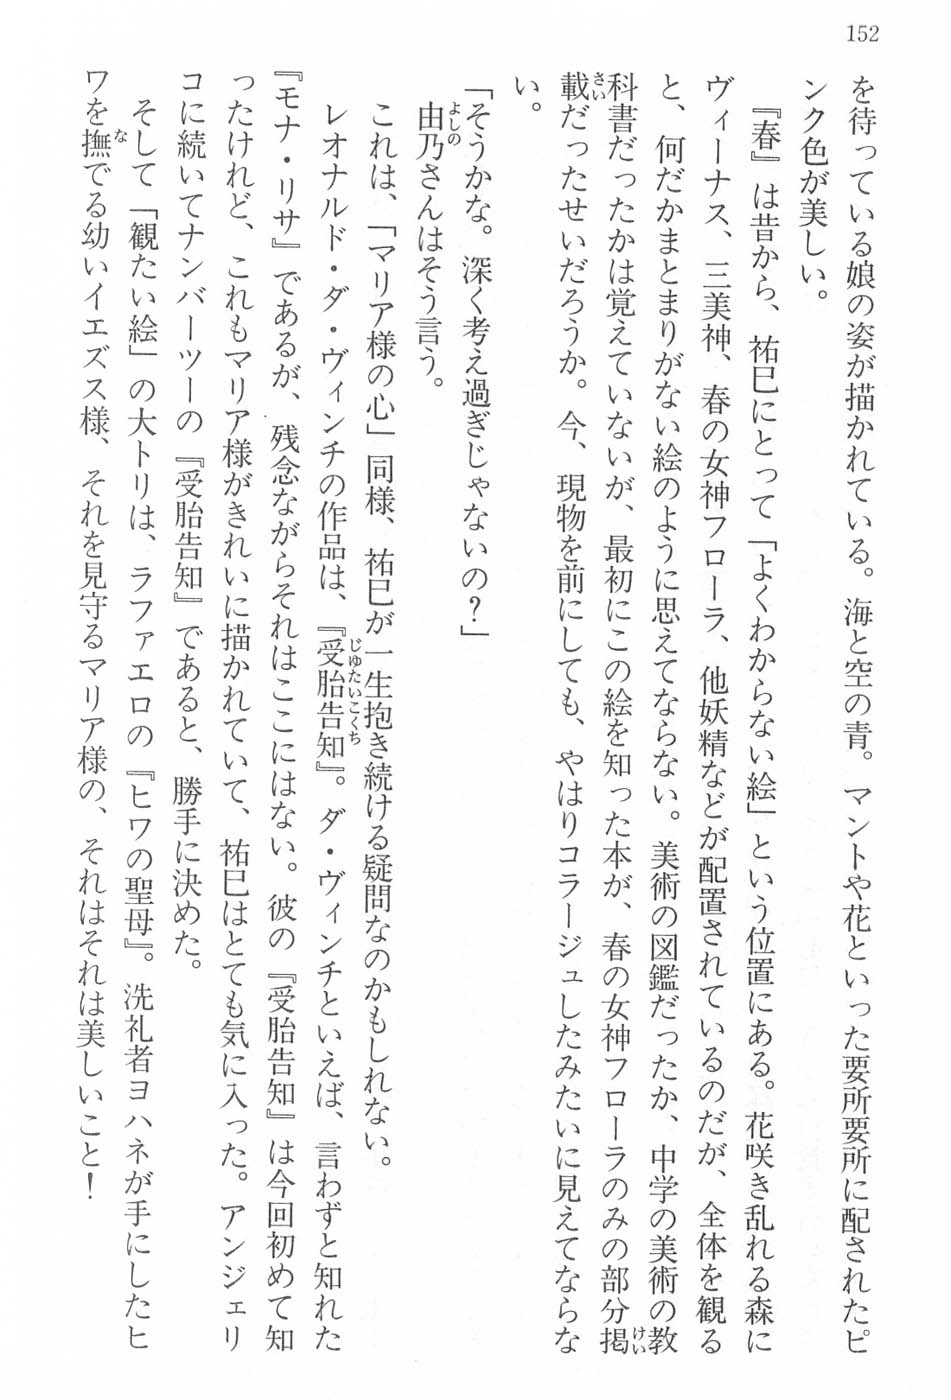 152
を待っている娘の姿が描かれている。海と空の青。マントや花といった要所要所に配されたピ
ンク色が美しい。
『春』は昔から、祐巳にとって「よくわからない絵」という位置にある。花咲き乱れる森に
ヴィーナス、三美神、春の女神フローラ、他妖精などが配置されているのだが、全体を観る
と、何だかまとまりがない絵のように思えてならない。美術の図鑑だったか、中学の美術の教
科書だったかは覚えていないが、最初にこの絵を知った本が、春の女神フローラのみの部分掲
載だったせいだろうか。今、現物を前にしても、やはりコラージュしたみたいに見えてならな
い。
「そうかな。深く考え過ぎじゃないの？」
由乃さんはそう言う。
これは、「マリア様の心」同様、祐巳が一生抱き続ける疑問なのかもしれない。
レオナルド・ダ・ヴィンチの作品は、『受胎告知』。ダ・ヴィンチといえば、言わずと知れた
『モナ・リサ』であるが、残念ながらそれはここにはない。彼の『受胎告知』は今回初めて知
ったけれど、これもマリア様がきれいに描かれていて、祐巳はとても気に入った。アンジェリ
コに続いてナンバーツーの『受胎告知』であると、勝手に決めた。
そして「観たい絵」の大トリは、ラファエロの『ヒワの聖母』。洗礼者ヨハネが手にしたヒ
ワを撫でる幼いイエズス様、それを見守るマリア様の、それはそれは美しいこと！